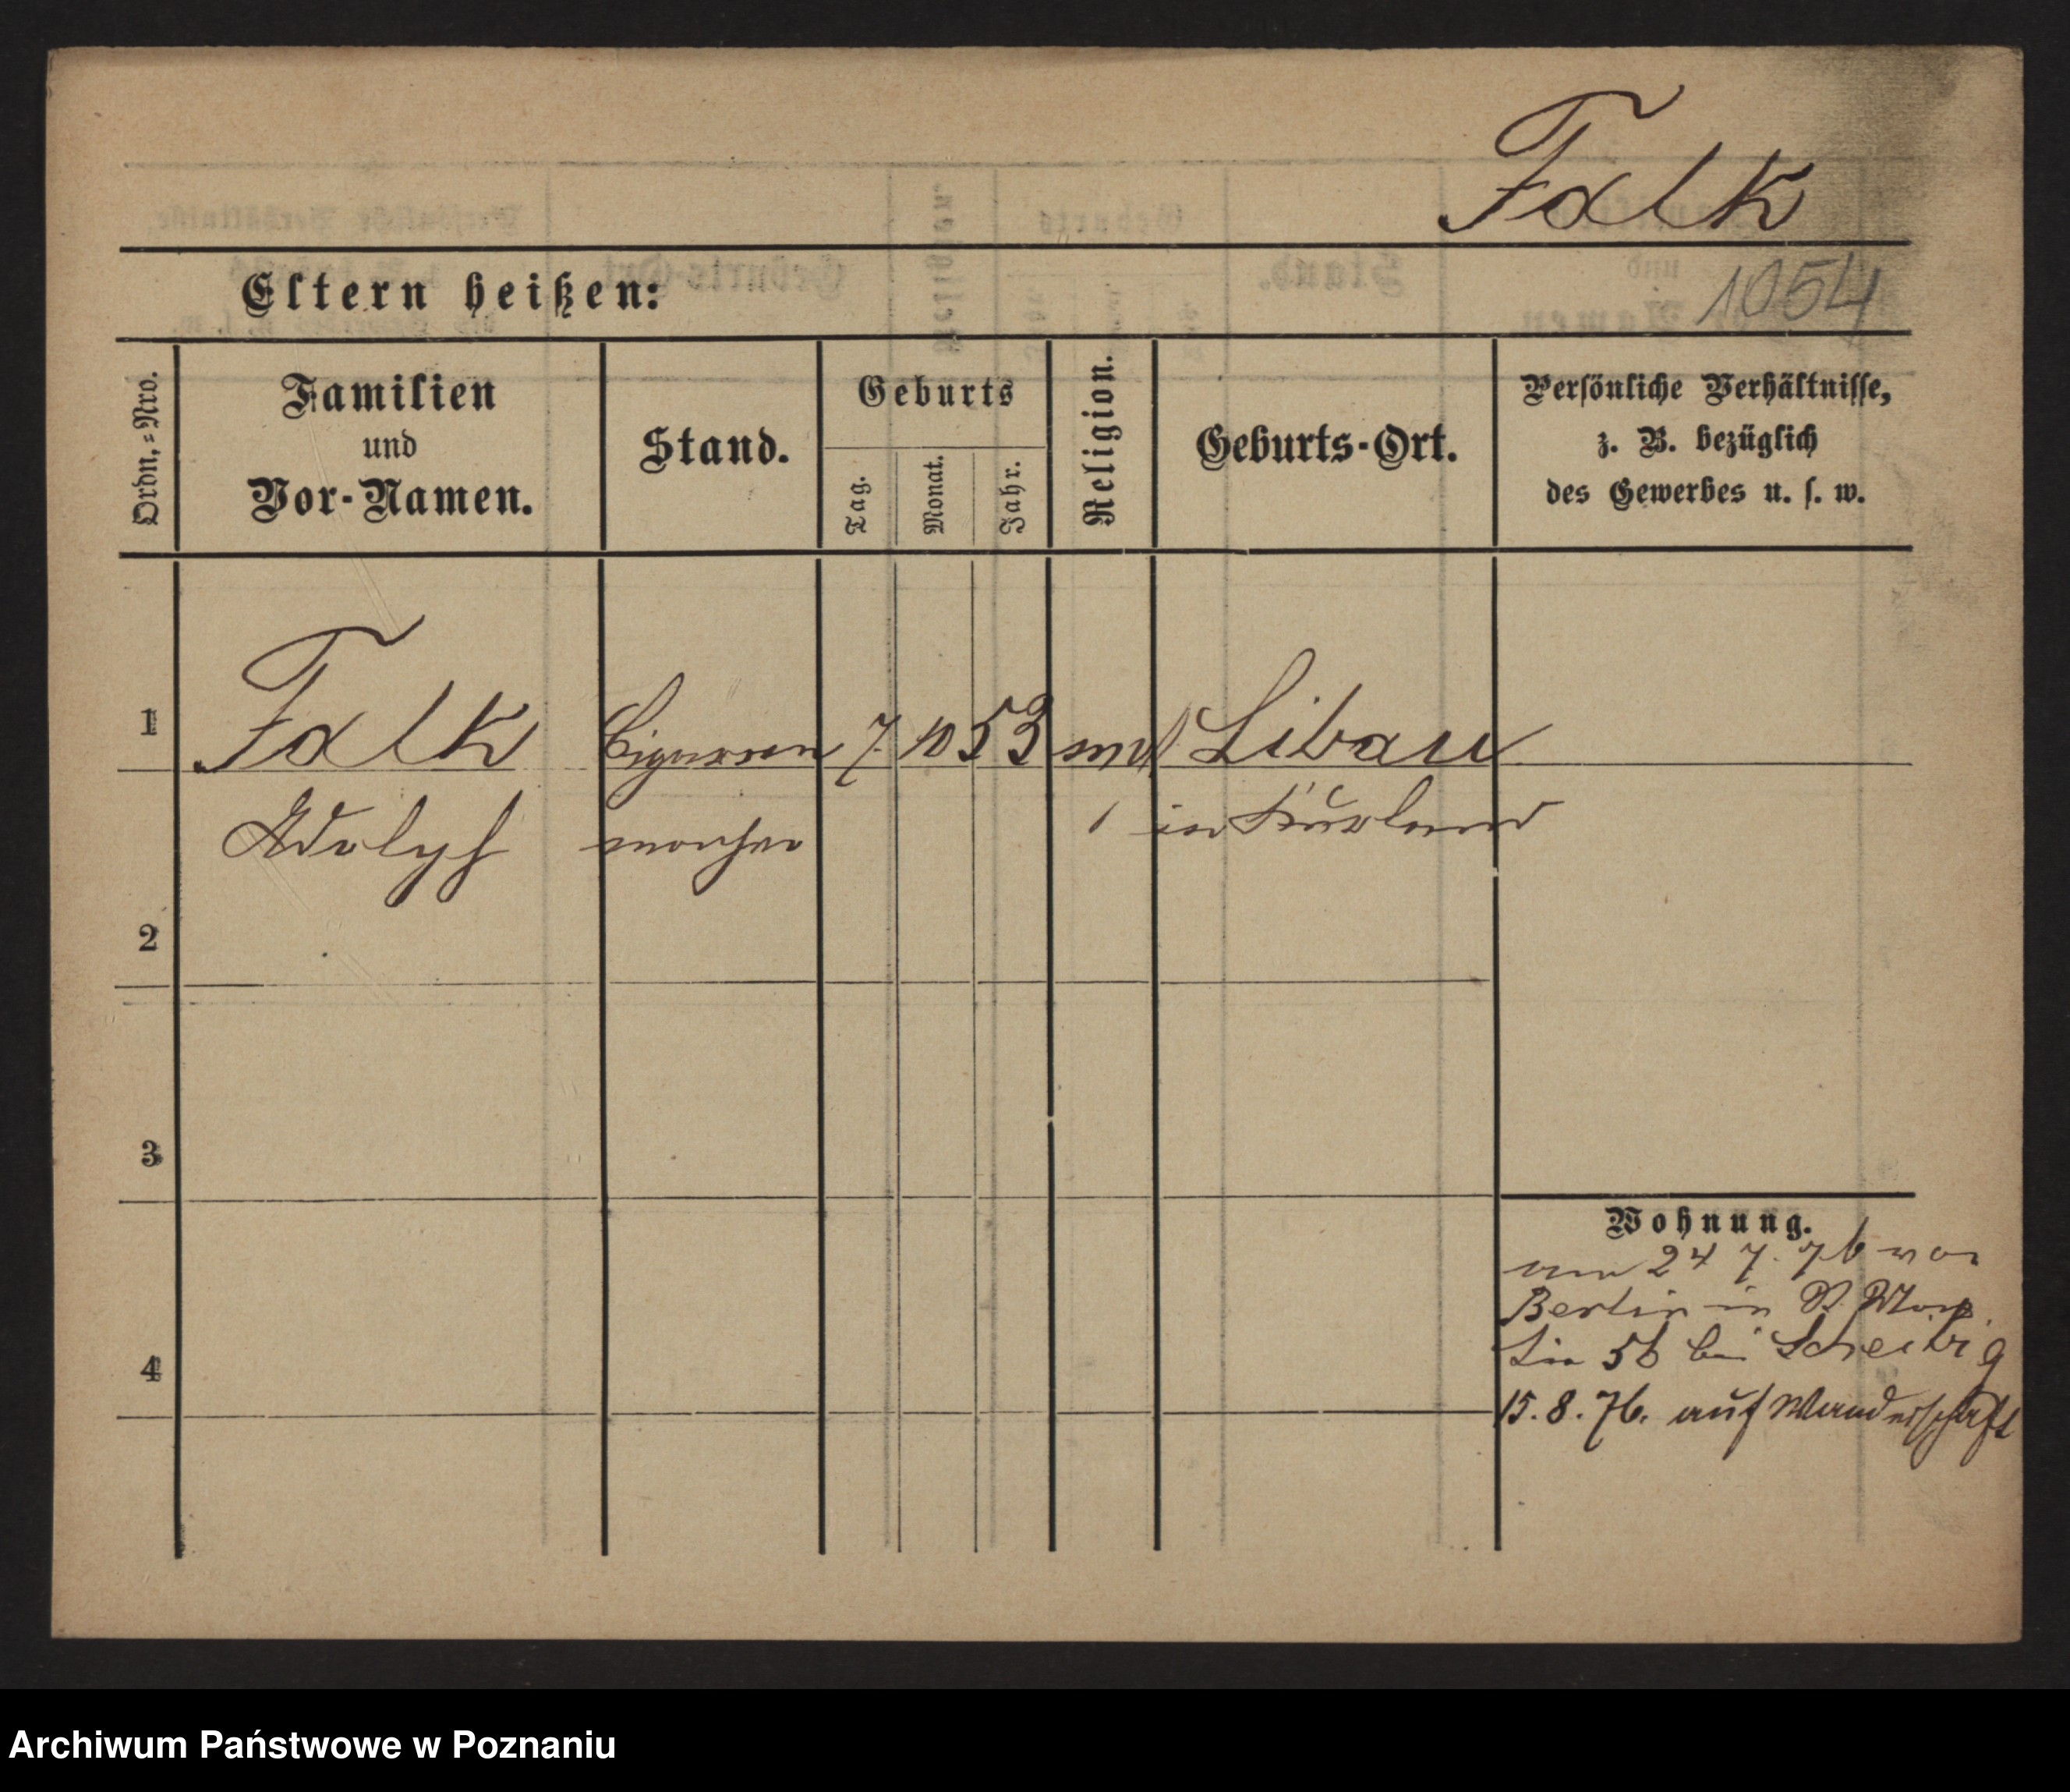 Falk
Eltern heißen:
1054
Ordn.=Nro.
Familien
und
Vor-Namen.
Stand.
Geburts
Tag.
Monat.
Jahr.
Religion.
Geburts-Ort.
Persönliche Verhältnisse,
z. B. bezüglich
des Gewerbes u. s. w.
1
Falk
Cigarren
7. 10 53
Libau
Adolph
macher
in Kurland
2
3
4
Wohnung.
am 24 7. 76 von
Berlin in St. Mar
tin 56 bei Scheibig
15. 8. 76. auf Wanderschaft
Archiwum Państwowe w Poznaniu